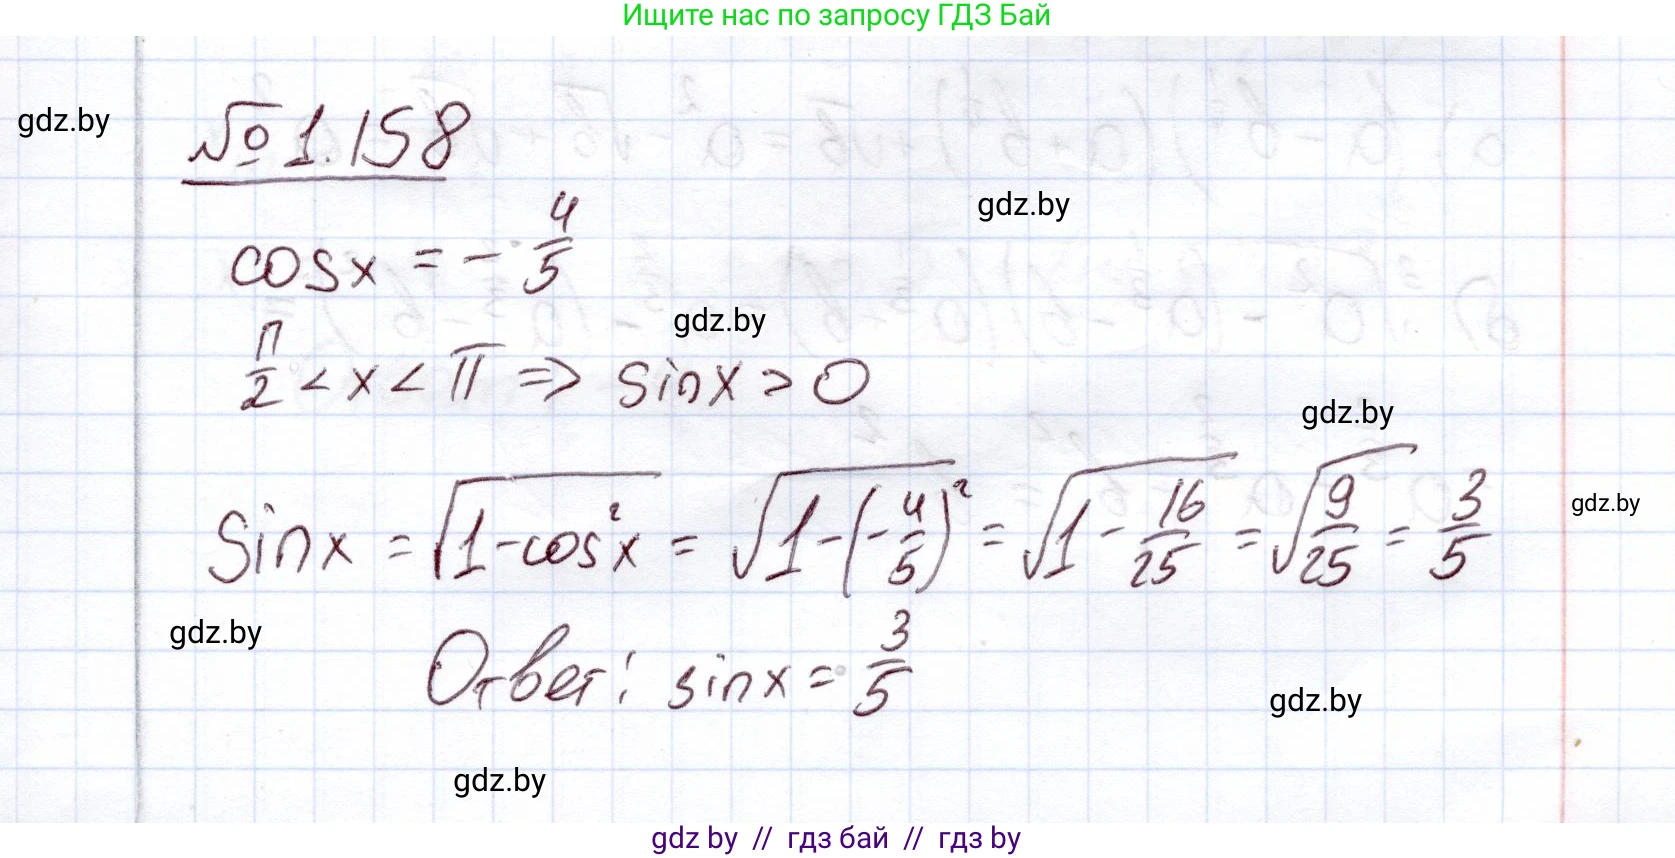 Ищите нас по запросу ГДЗ Бай
gdz.by
№ 1.158
gdz.by
cosx = - 4/5
gdz.by
π/2 < x < π => sinx > 0
gdz.by
sinx = √(1-cos²x) = √(1-(-4/5)²) = √(1-16/25) = √(9/25) = 3/5
gdz.by
gdz.by
Ответ: sinx = 3/5
gdz.by
gdz.by
gdz by // гдз бай // гдз by